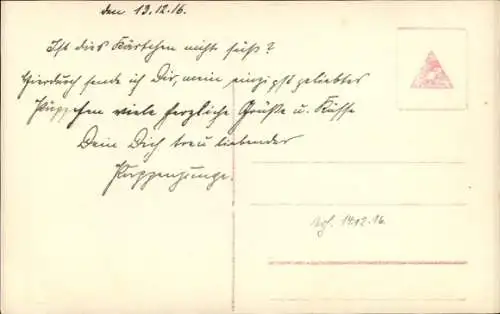 den 13.12.16.
Ist dies Kärtchen nicht süß?
Hierdurch sende ich Dir, mein einzigst geliebtes
Püppchen viele herzliche Grüße u. Küsse
Dein Dich treu liebender
Puppenjunge.
14.12.16.